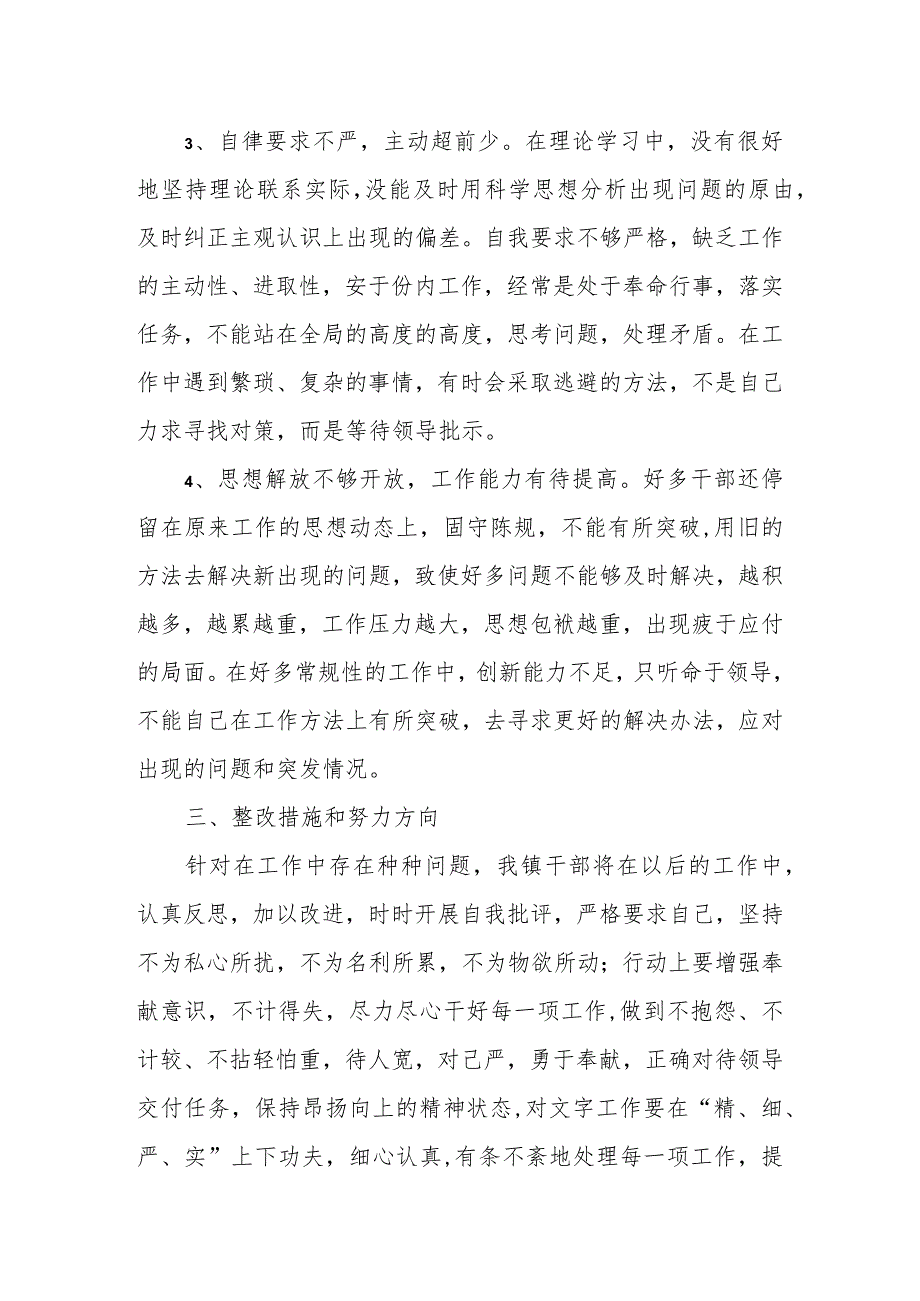 3、自律要求不严，主动超前少。在理论学习中，没有很好
地坚持理论联系实际,没能及时用科学思想分析出现问题的原由，
及时纠正主观认识上出现的偏差。自我要求不够严格，缺乏工作
的主动性、进取性，安于份内工作，经常是处于奉命行事，落实
任务，不能站在全局的高度的高度，思考问题，处理矛盾。在工
作中遇到繁琐、复杂的事情，有时会采取逃避的方法，不是自己
力求寻找对策，而是等待领导批示。
4、思想解放不够开放，工作能力有待提高。好多干部还停
留在原来工作的思想动态上，固守陈规，不能有所突破,用旧的
方法去解决新出现的问题，致使好多问题不能够及时解决，越积
越多，越累越重，工作压力越大，思想包袱越重，出现疲于应付
的局面。在好多常规性的工作中，创新能力不足，只听命于领导，
不能自己在工作方法上有所突破，去寻求更好的解决办法，应对
出现的问题和突发情况。
三、整改措施和努力方向
针对在工作中存在种种问题，我镇干部将在以后的工作中，
认真反思，加以改进，时时开展自我批评，严格要求自己，坚持
不为私心所扰，不为名利所累，不为物欲所动；行动上要增强奉
献意识，不计得失，尽力尽心干好每一项工作,做到不抱怨、不
计较、不拈轻怕重，待人宽，对己严，勇于奉献，正确对待领导
交付任务，保持昂扬向上的精神状态,对文字工作要在“精、细、
严、实”上下功夫，细心认真,有条不紊地处理每一项工作，提